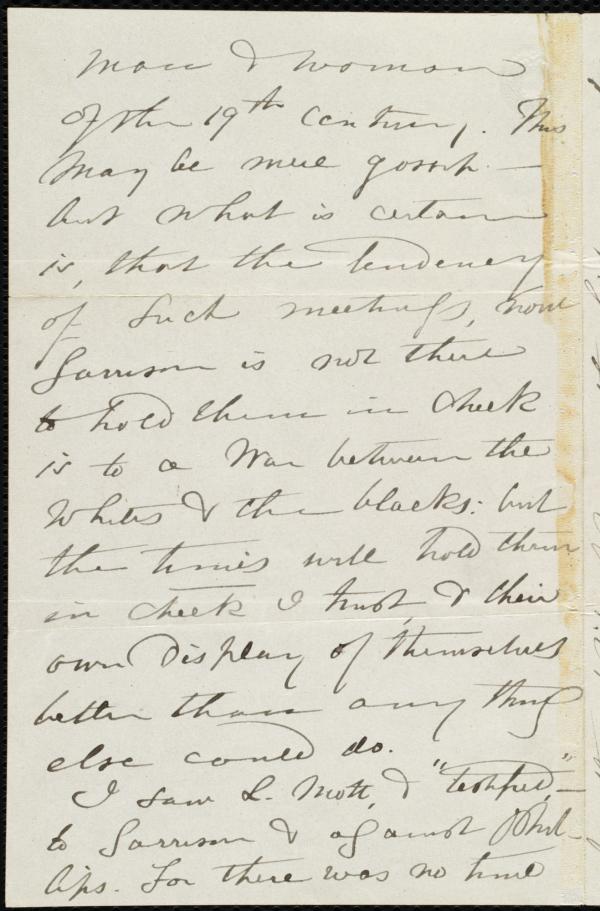 man & woman
of the 19th century. This
may be mere gossip —
but what is certain
is, that the tendency
of such meetings, now
Garrison is not there
to hold them in check
is to a War between the
Whites & the blacks: but
the times will hold them
in check I trust, & their
own display of themselves
better than any thing
else could do.
I saw L. Mott, & "testified" —
to Garrison & against Phil-
lips. For there was no time